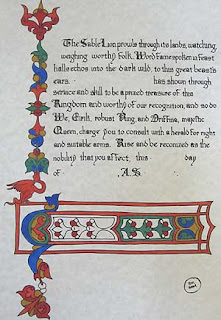 The Sable Lion prowls through its lands, watching,
weighing worthy folk. Word Fame spoken in feast
halls echos into the dark wild, to this great beasts
ears. has shown through
service and skill to be a prized treasure of this
Kingdom and worthy of our recognition, and so do
We, Eirik, robust King, and Driffina, majestic
Queen, charge you to consult with a herald for right
and suitable arms. Rise and be recognized as the
nobility that you affect, this day
of , A.S.